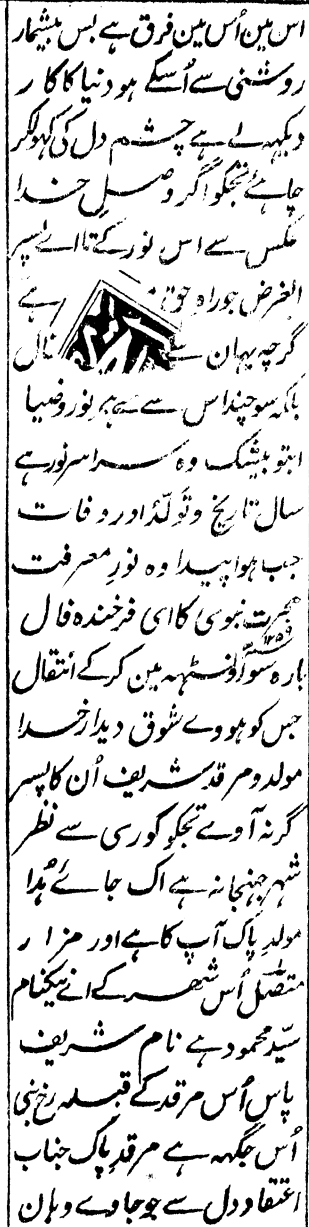 اس مین اُس مین فرق ہے بس بیشمار
روشنی سے اُسکے ہو دنیا کا کار
دیکہہ لے ہے چشم دل کی کہولکر
چاہئے تجکو اگر وصل خدا
عکس سے اس نور کے تا اے پسر
الغرض جو راہ حق ہے
گرچہ یہان سے
بلکہ سو چند اس سے ہے پر نور و ضیا
ابتو بیشک وہ سراسر نور ہے
سال تاریخ و تولّد اور وفات
جب ہوا پیدا وہ نور معرفت
ہجرت نبوی کا ای فرخندہ فال
بارہ سو اونسٹہہ مین کر کے انتقال
۱۲۵۹
جس کو ہووے شوق دیدار خدا
مولد و مرقد شریف اُن کا پسر
گر نہ آوے تجکو کوری سے نظر
شہر جہنجانہ ہے اک جائے ہُدا
مولد پاک آپ کا ہے اور مزار
متصل اُس شہر کے اے نیکنام
سیّد محمود ہے نام شریف
پاس اُس مرقد کے قبلہ رخ بنی
اُس جگہہ ہے مرقد پاک جناب
اعتقاد دل سے جو جاوے وہان